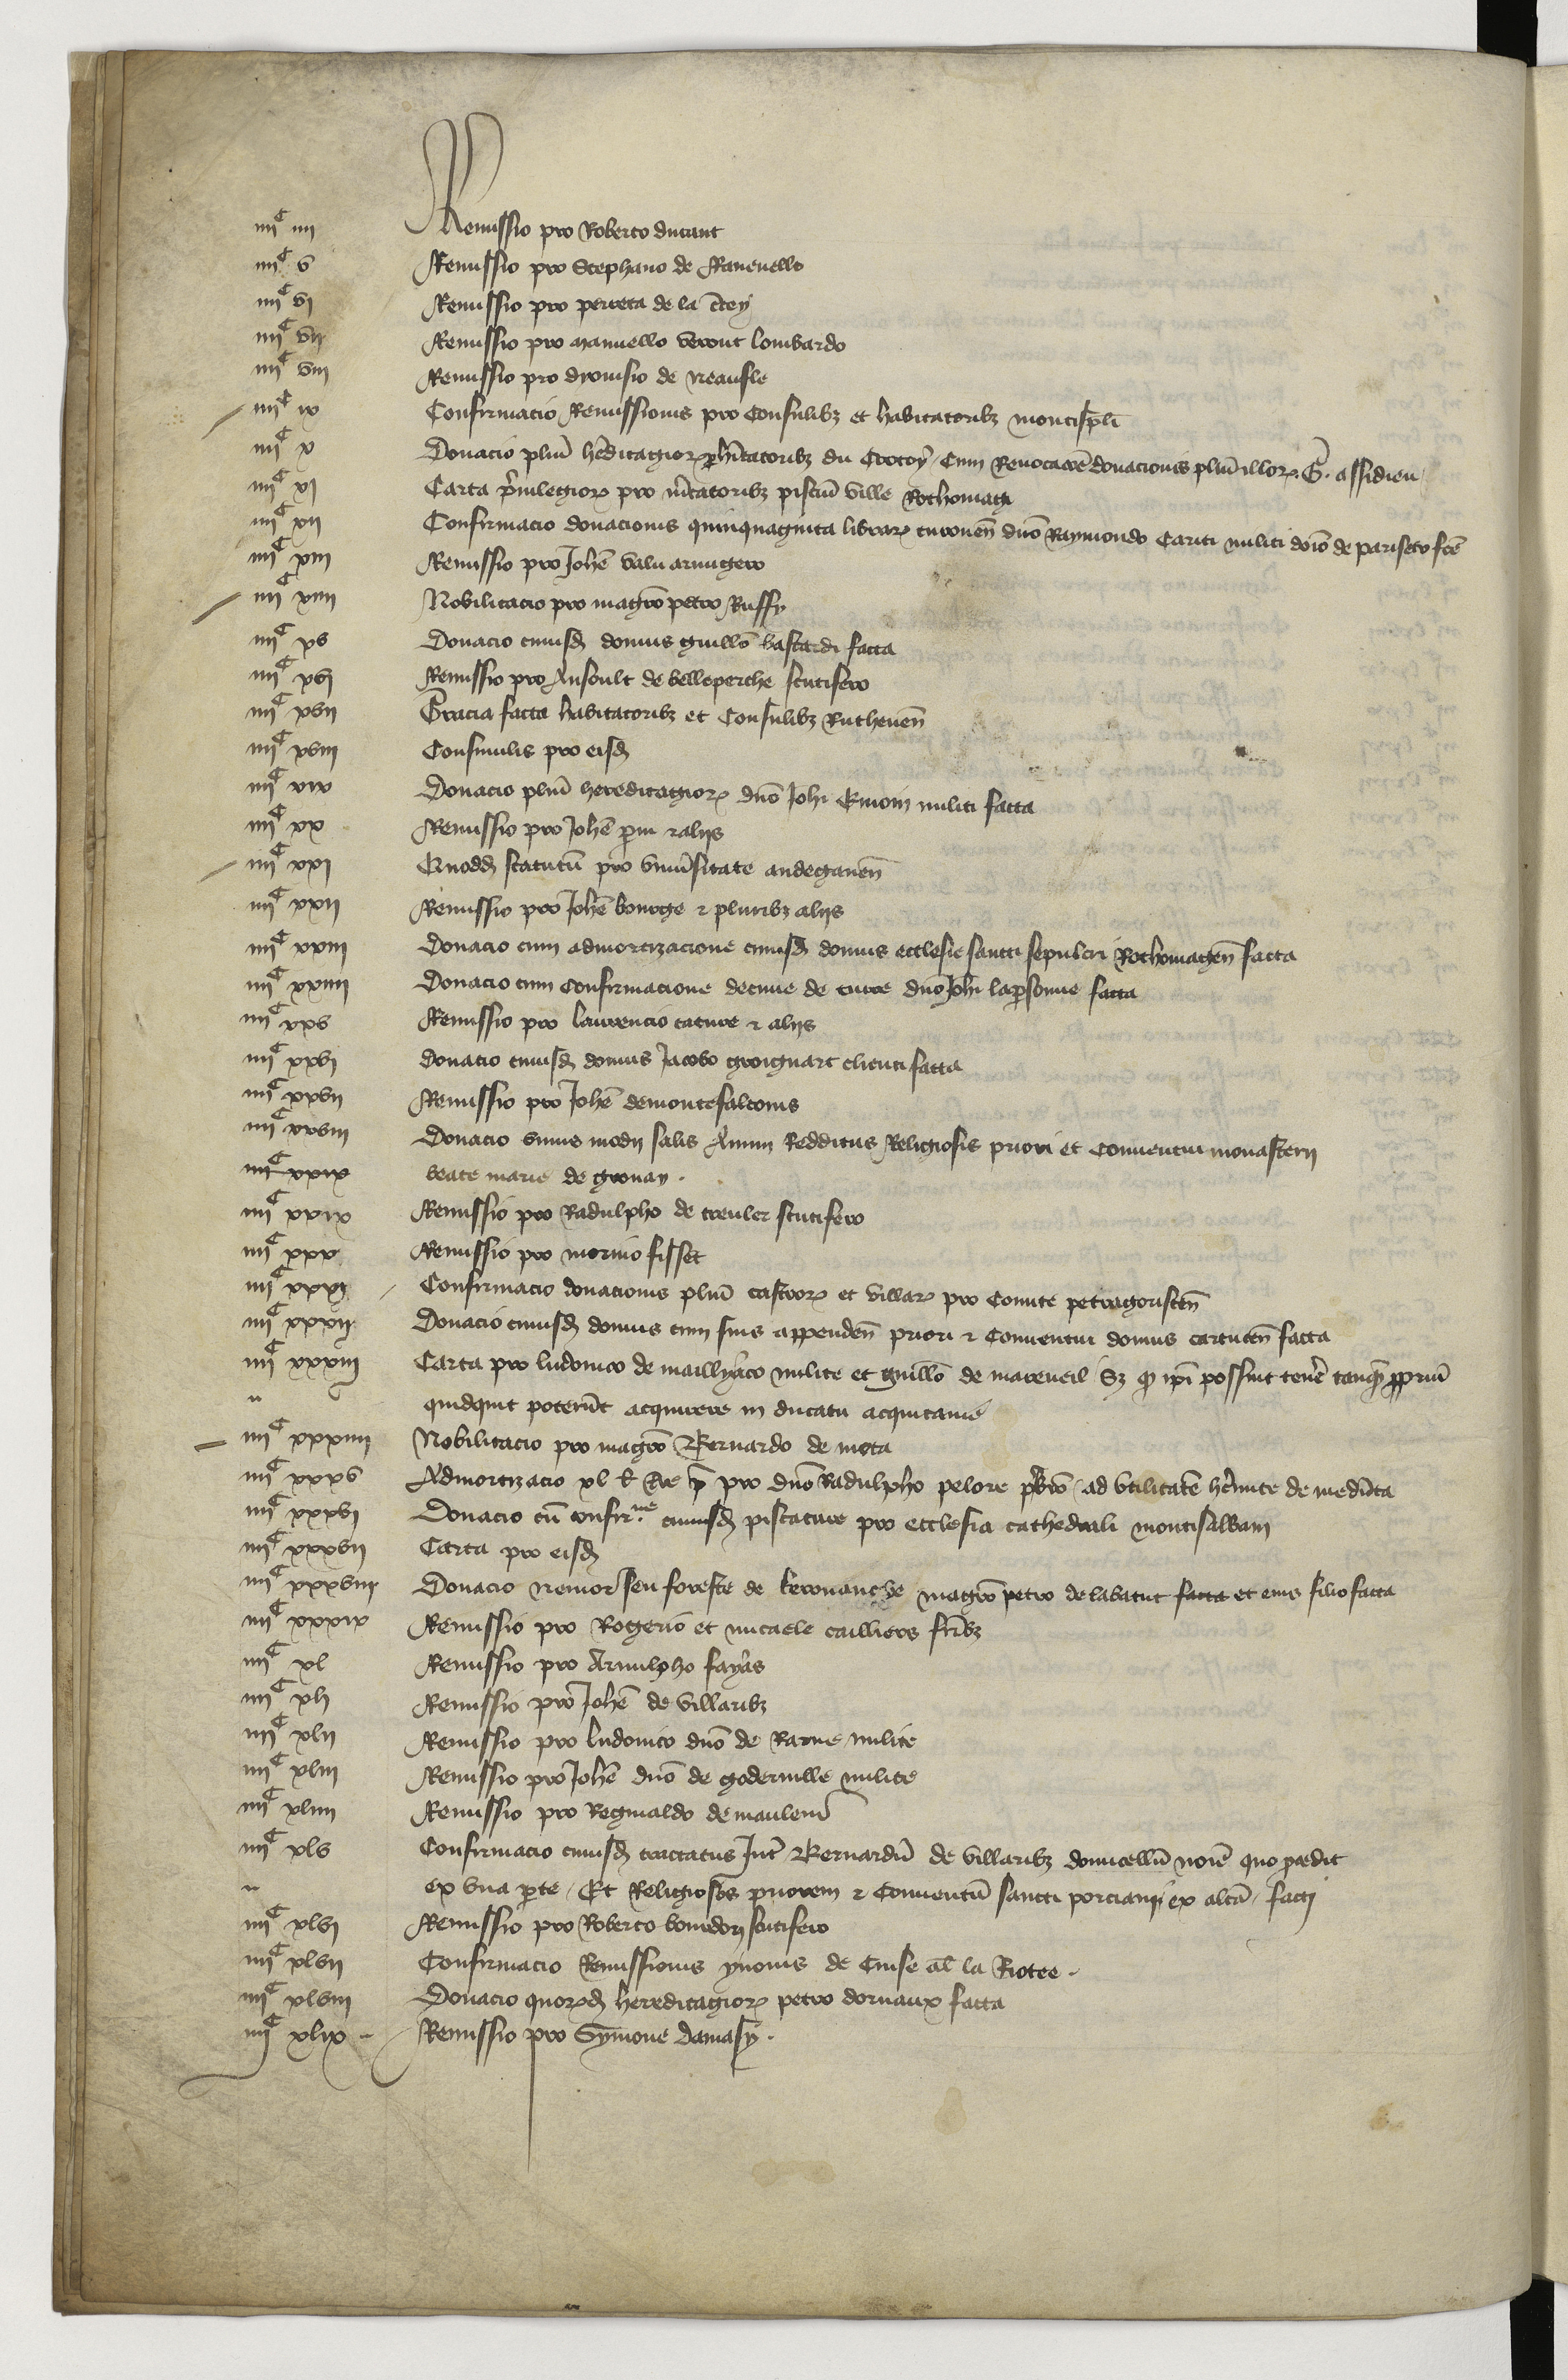 iiiiᶜ iiii Remissio pro Roberto ducant
iiiiᶜ v Remissio pro Stephano de Raneuello
iiiiᶜ vi Remissio pro perreta de la
iiiiᶜ vii Remissio pro manuello veront lombardo
iiiiᶜ viii Remissio pro dyonisio de neaufle
iiiiᶜ ix Confirmacio Remissionis pro Consulibꝫ et habitatoribꝫ montispłi
iiiiᶜ x Donacio pluriū hẽditagioꝝ hĩtatoribꝫ du Crotoy Cum Reuocacõe donacionis pluriū illoꝝ G. assidieu
iiiiᶜ xi Carta p̃uilegioꝝ pro m̃catoribꝫ pisciū ville Rothomag̃
iiiiᶜ xii Confirmacio donacionis quinquaginta libraꝝ turoneñ dnõ Raymondo Cariti militi dnõ de pariseto fcẽ
iiiiᶜ xiii Remissio pro Johẽ valu armigero
iiiiᶜ xiiii Nobilitacio pro magrõ petro Ruffy
iiiiᶜ xv Donacio cuiusd̃ domus guillõ bastardi facta
iiiiᶜ xvi Remissio pro Ansoult de belleperche scutifero
iiiiᶜ xvii Gracia facta habitatoribꝫ et Consulibꝫ Rutheneñ
iiiiᶜ xviii Consimilis pro eisd̃
iiiiᶜ xix Donacio pluriū hereditagioꝝ dnõ Johi Emoin militi facta
iiiiᶜ xx Remissio pro Johẽ pin ⁊ alijs
iiiiᶜ xxi Quodd̃ statutū pro vniũsitate andegaueñ
iiiiᶜ xxii Remissio pro Johẽ bourge ⁊ pluribꝫ alijs
iiiiᶜ xxiii Donacio cum admortizacione cuiusd̃ domus ecclesie sancti sepulcri Rothomageñ facta
iiiiᶜ xxiiii Donacio cum Confirmacione decime de curre dnõ Johi lapersonne facta
iiiiᶜ xxv Remissio pro laurencio cature ⁊ alijs
iiiiᶜ xxvi Donacio cuiusd̃ domus Jacobo groignart clienti facta
iiiiᶜ xxvii Remissio pro Johẽ de montefalconis
iiiiᶜ xxviii Donacio vnius modii salis Annui Redditus Religiosis priori et Conuentui monasterii
iiiiᶜ xxix beate marie de gronay.
iiiiᶜ xxix Remissio pro Radulpho de creuler scutifero
iiiiᶜ xxx Remissio pro morino fisset
iiiiᶜ xxxi Confirmacio donacionis pluriū castroꝝ et villaꝝ pro Comite petragoriceñ
iiiiᶜ xxxii Donacio cuiusd̃ domus cum suis appendeñ priori ⁊ Conuentui domus cartuceñ facta
iiiiᶜ xxxiii Carta pro ludouico de maillyaco milite et guillõ de mareueil Sꝫ ꝙ ip̃i possint tenẽ tanq̃ ꝓpriū
ii quidquit poterũt acquirere in ducatu acquitanie
iiiiᶜ xxxiiii Nobilitacio pro magrõ Bernardo de mota
iiiiᶜ xxxv Admortizacio xl pro dnõ Radulpho pelore pb̃rõ ad vtilitatẽ hẽmite de medũta
iiiiᶜ xxxvi Donacio cũ confir.ⁿᵉ cuiusd̃ piscature pro ecclesia cathedrali montisalbani
iiiiᶜ xxxvii Carta pro eisd̃
iiiiᶜ xxxviii Donacio nemoꝝ seu foreste de kerouanche magrõ petro de labatut facta et eius filio facta
iiiiᶜ xxxix Remissio pro Rogerio et micaele cailliers fr̃ibꝫ
iiiiᶜ xl Remissio pro Arnulpho fayas
iiiiᶜ xli Remissio pro Johẽ de villaribꝫ
iiiiᶜ xlii Remissio pro ludouico dnõ de Rarne milite
iiiiᶜ xliii Remissio pro Johẽ dnõ de goderuille milite
iiiiᶜ xliiii Remissio pro Reginaldo de mauleur̃
iiiiᶜ xlv Confirmacio cuiusd̃ tractatus Int̃ Bernardũ de villaribꝫ domicellũ noiẽ quo p̃cedit
ii ex vna ꝑte Et Religiosos priorem ⁊ Conuentũ sancti porciani ex altã facti
iiiiᶜ xlvi Remissio pro Roberto bourdon scutifero
iiiiᶜ xlvii Confirmacio Remissionis ynonis de Cuise al̃ la Riotee.
iiiiᶜ xlviii Donacio quoꝝd̃ hereditagioꝝ petro dornaux facta
iiiiᶜ xlix Remissio pro Symone damasy.